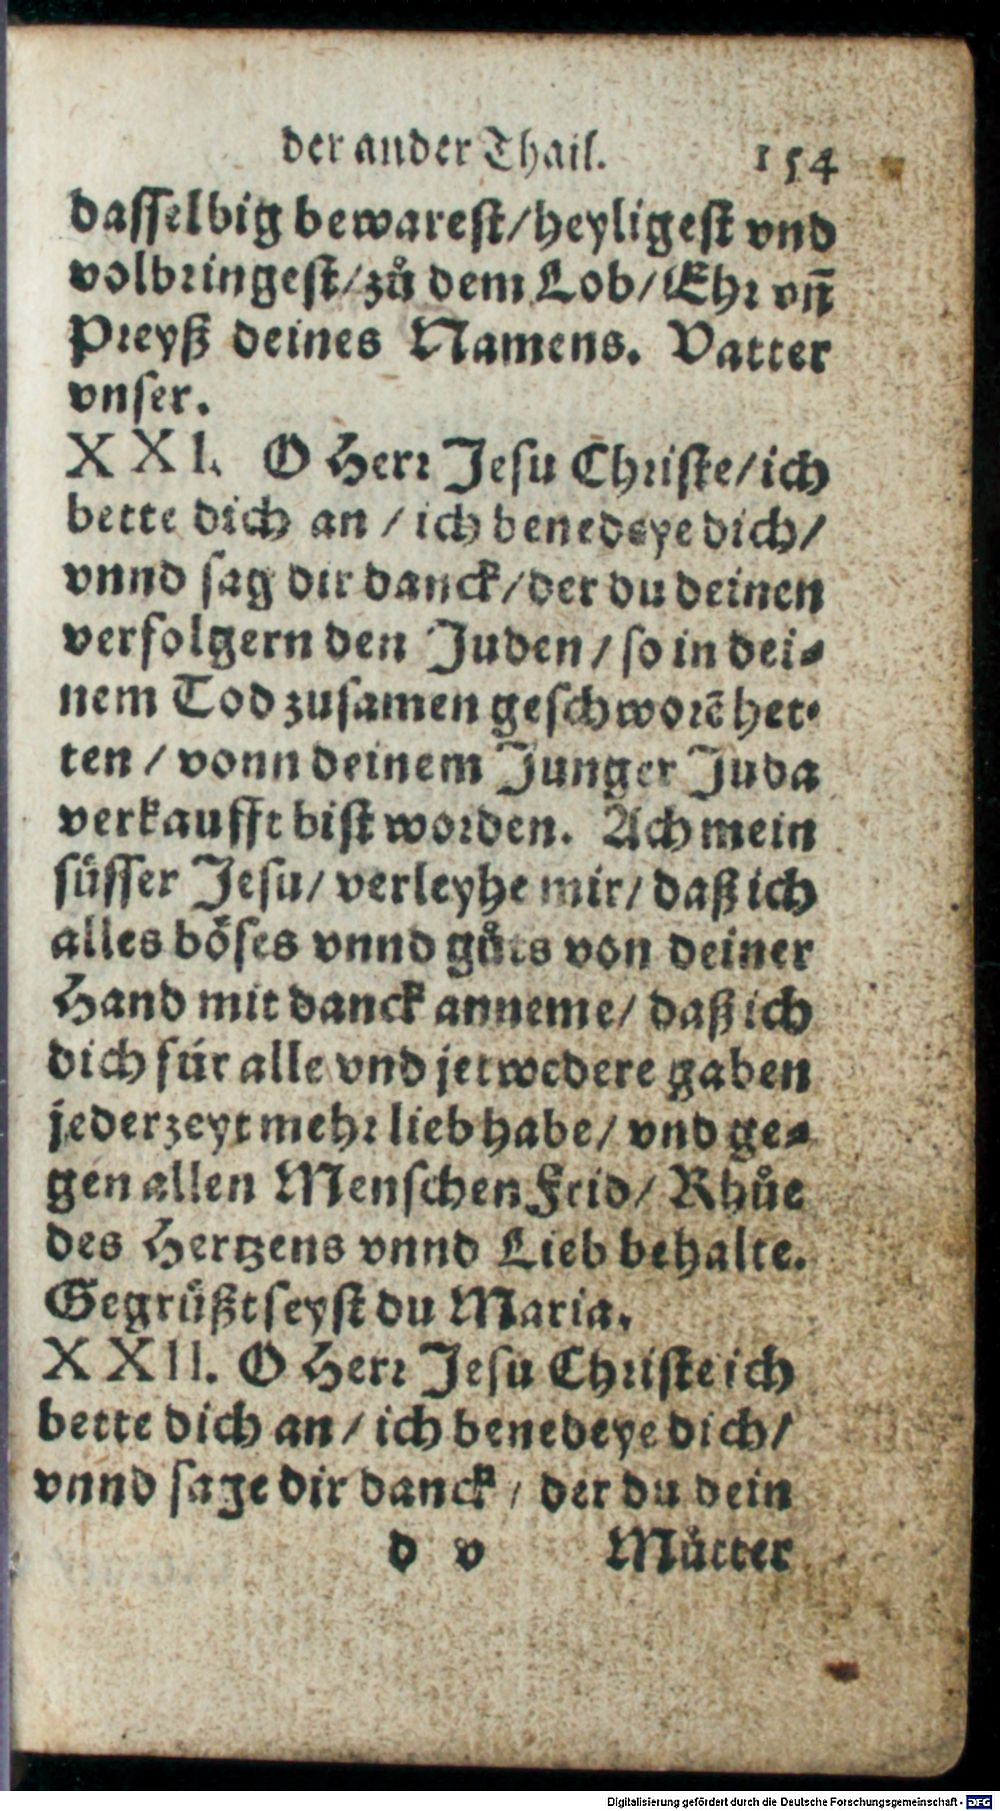 der ander Thail. 154
dasselbig bewarest/heyligest vnd
volbringest/zů dem Lob/Ehr vñ
Preyß deines Namens. Vatter
vnser.
XXI. O Herr Jesu Christe/ich
bette dich an / ich benedeye dich/
vnnd sag dir danck/der du deinen
verfolgern den Juden / so in dei-
nem Tod zusamen geschworẽ het-
ten / vonn deinem Junger Juda
verkaufft bist worden. Ach mein
süsser Jesu/ verleyhe mir/ daß ich
alles böses vnnd gůts von deiner
Hand mit danck anneme/ daß ich
dich für alle vnd jetwedere gaben
jederzeyt mehr lieb habe/ vnd ge-
gen allen Menschen Frid/ Rhůe
des Hertzens vnnd Lieb behalte.
Gegrüßt seyst du Maria.
XXII. O Herr Jesu Christe ich
bette dich an / ich benedeye dich/
vnnd sage dir danck / der du dein
d v Můtter
Digitalisierung gefördert durch die Deutsche Forschungsgemeinschaft - DFG